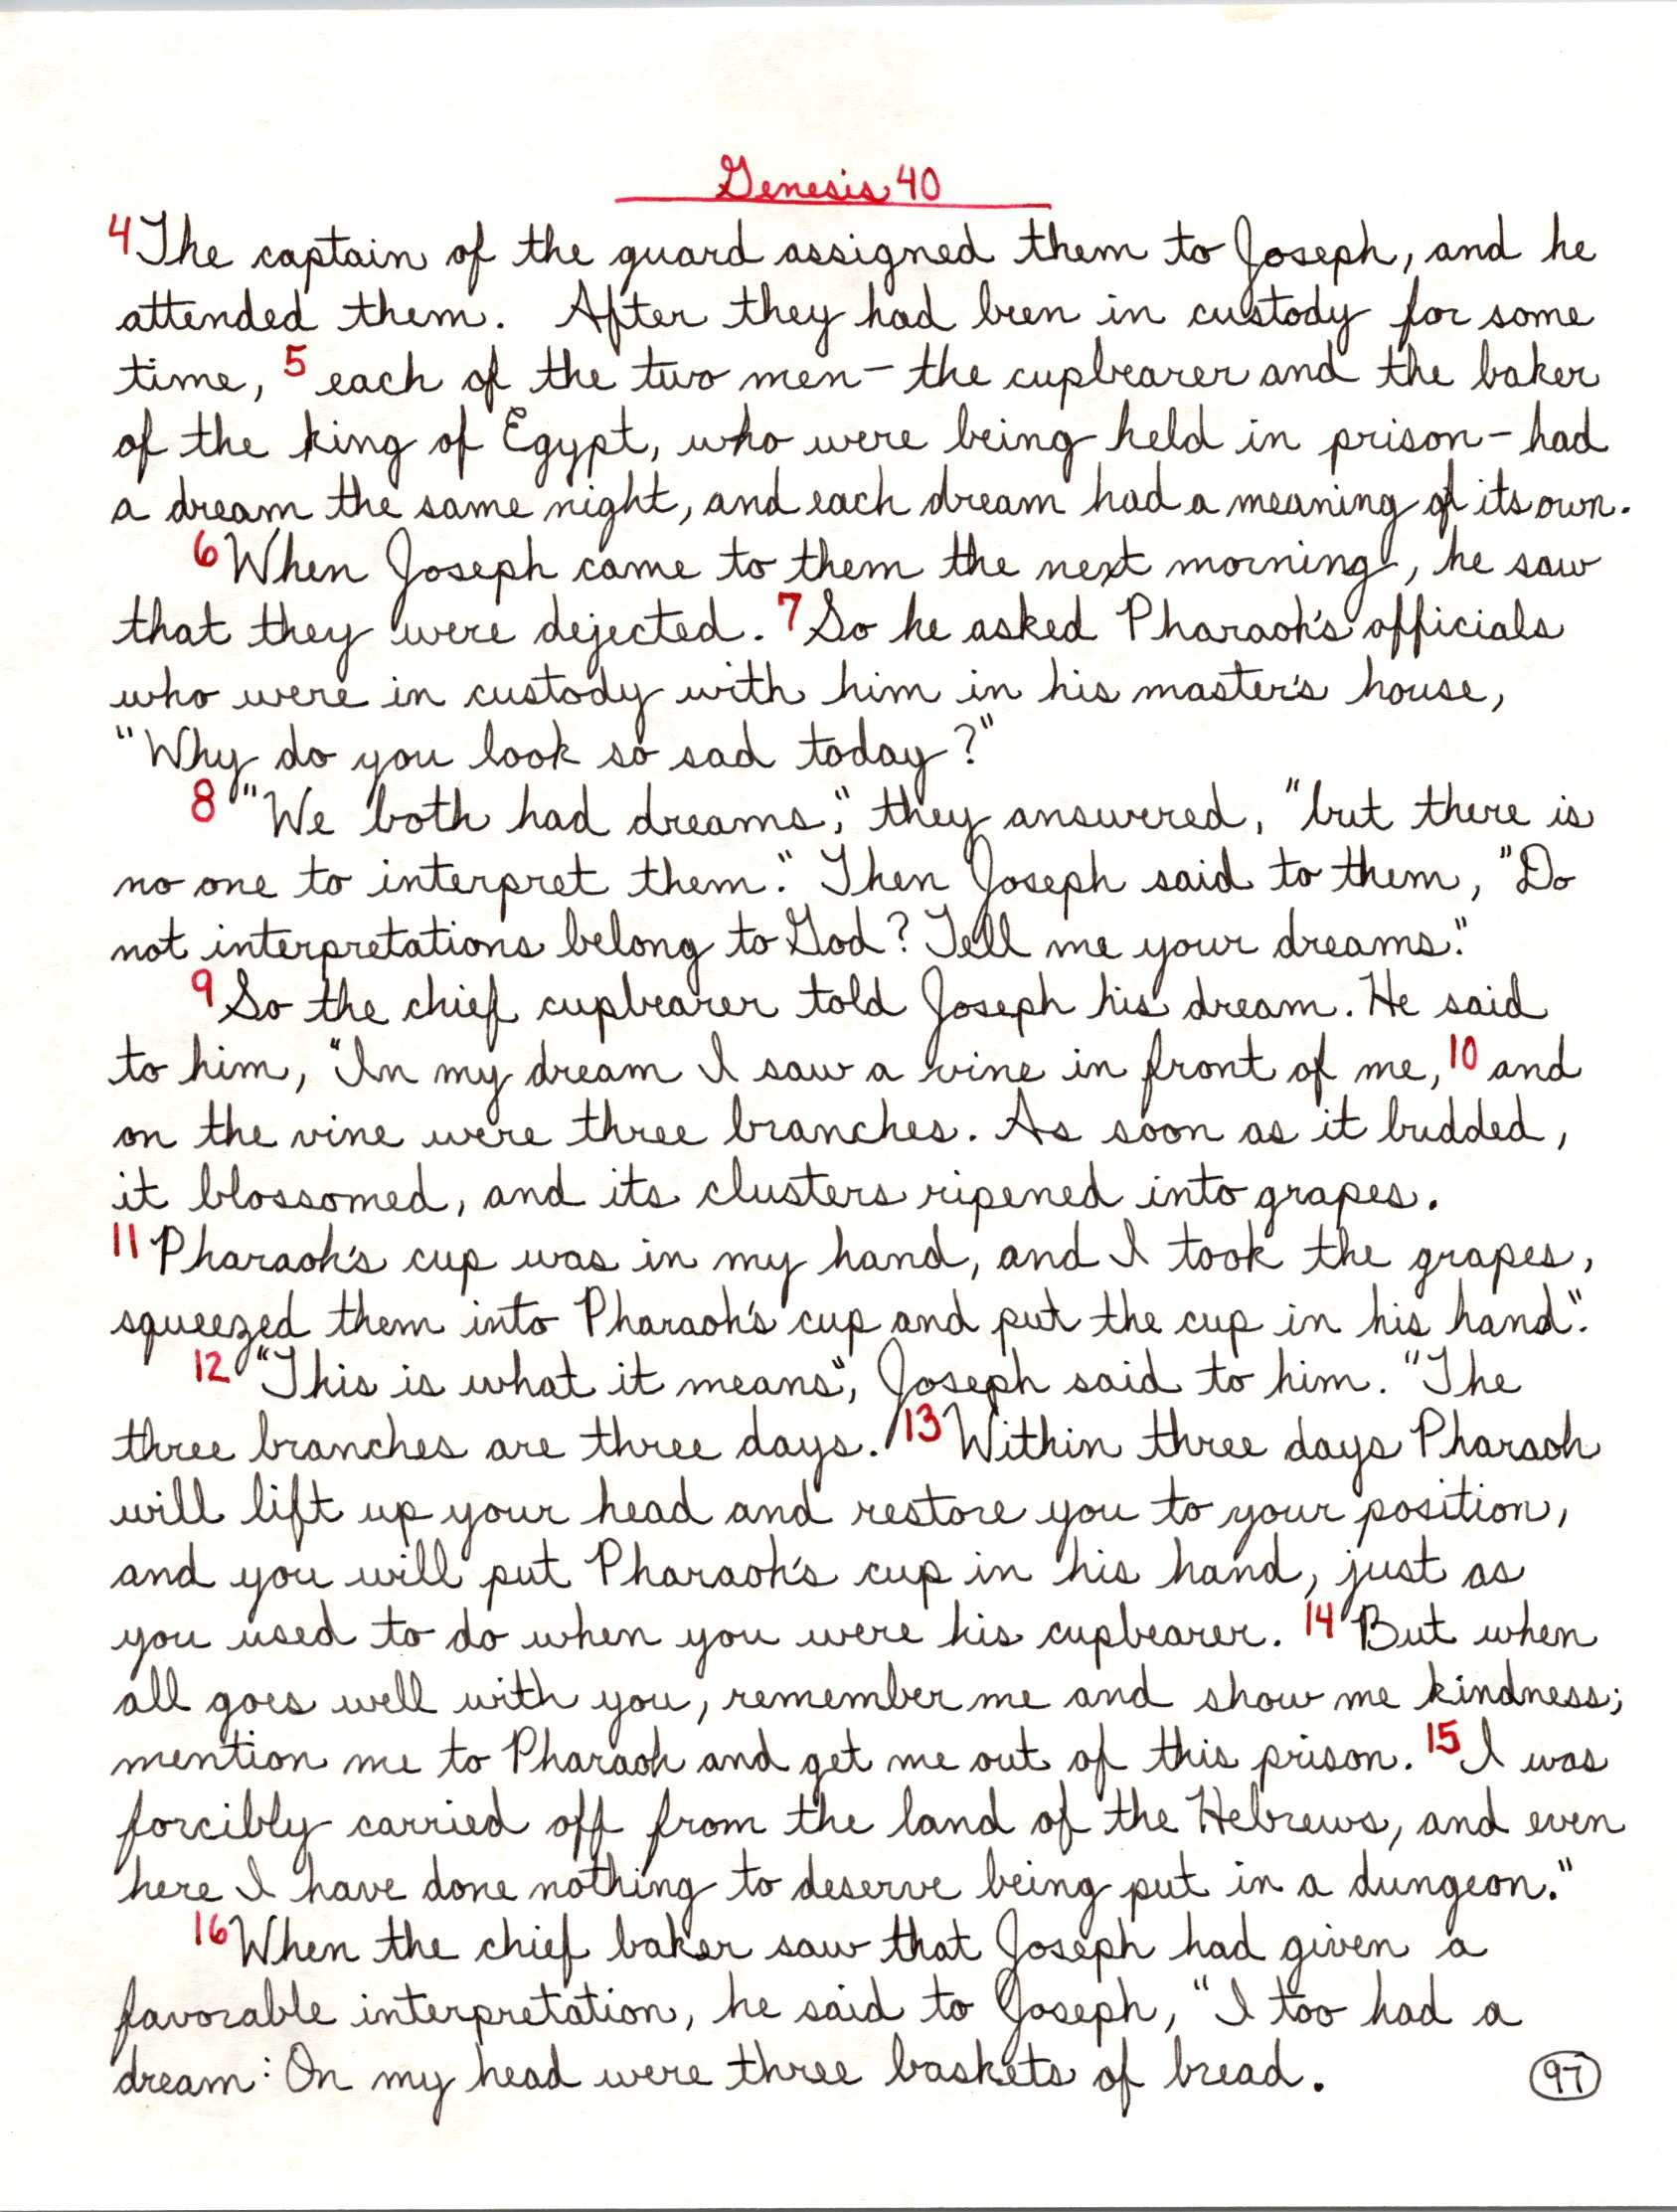 Genesis 40
4 The captain of the guard assigned them to Joseph, and he
attended them. After they had been in custody for some
time, 5 each of the two men – the cupbearer and the baker
of the king of Egypt, who were being held in prison – had
a dream the same night, and each dream had a meaning of its own.
6 When Joseph came to them the next morning, he saw
that they were dejected. 7 So he asked Pharaoh's officials
who were in custody with him in his master's house,
"Why do you look so sad today?"
8 "We both had dreams," they answered, "but there is
no one to interpret them." Then Joseph said to them, "Do
not interpretations belong to God? Tell me your dreams."
9 So the chief cupbearer told Joseph his dream. He said
to him, "In my dream I saw a vine in front of me, 10 and
on the vine were three branches. As soon as it budded,
it blossomed, and its clusters ripened into grapes.
11 Pharaoh's cup was in my hand, and I took the grapes,
squeezed them into Pharaoh's cup and put the cup in his hand."
12 "This is what it means", Joseph said to him. "The
three branches are three days. 13 Within three days Pharaoh
will lift up your head and restore you to your position,
and you will put Pharaoh's cup in his hand, just as
you used to do when you were his cupbearer. 14 But when
all goes well with you, remember me and show me kindness;
mention me to Pharaoh and get me out of this prison. 15 I was
forcibly carried off from the land of the Hebrews, and even
here I have done nothing to deserve being put in a dungeon."
16 When the chief baker saw that Joseph had given a
favorable interpretation, he said to Joseph, "I too had a
dream: On my head were three baskets of bread.
97